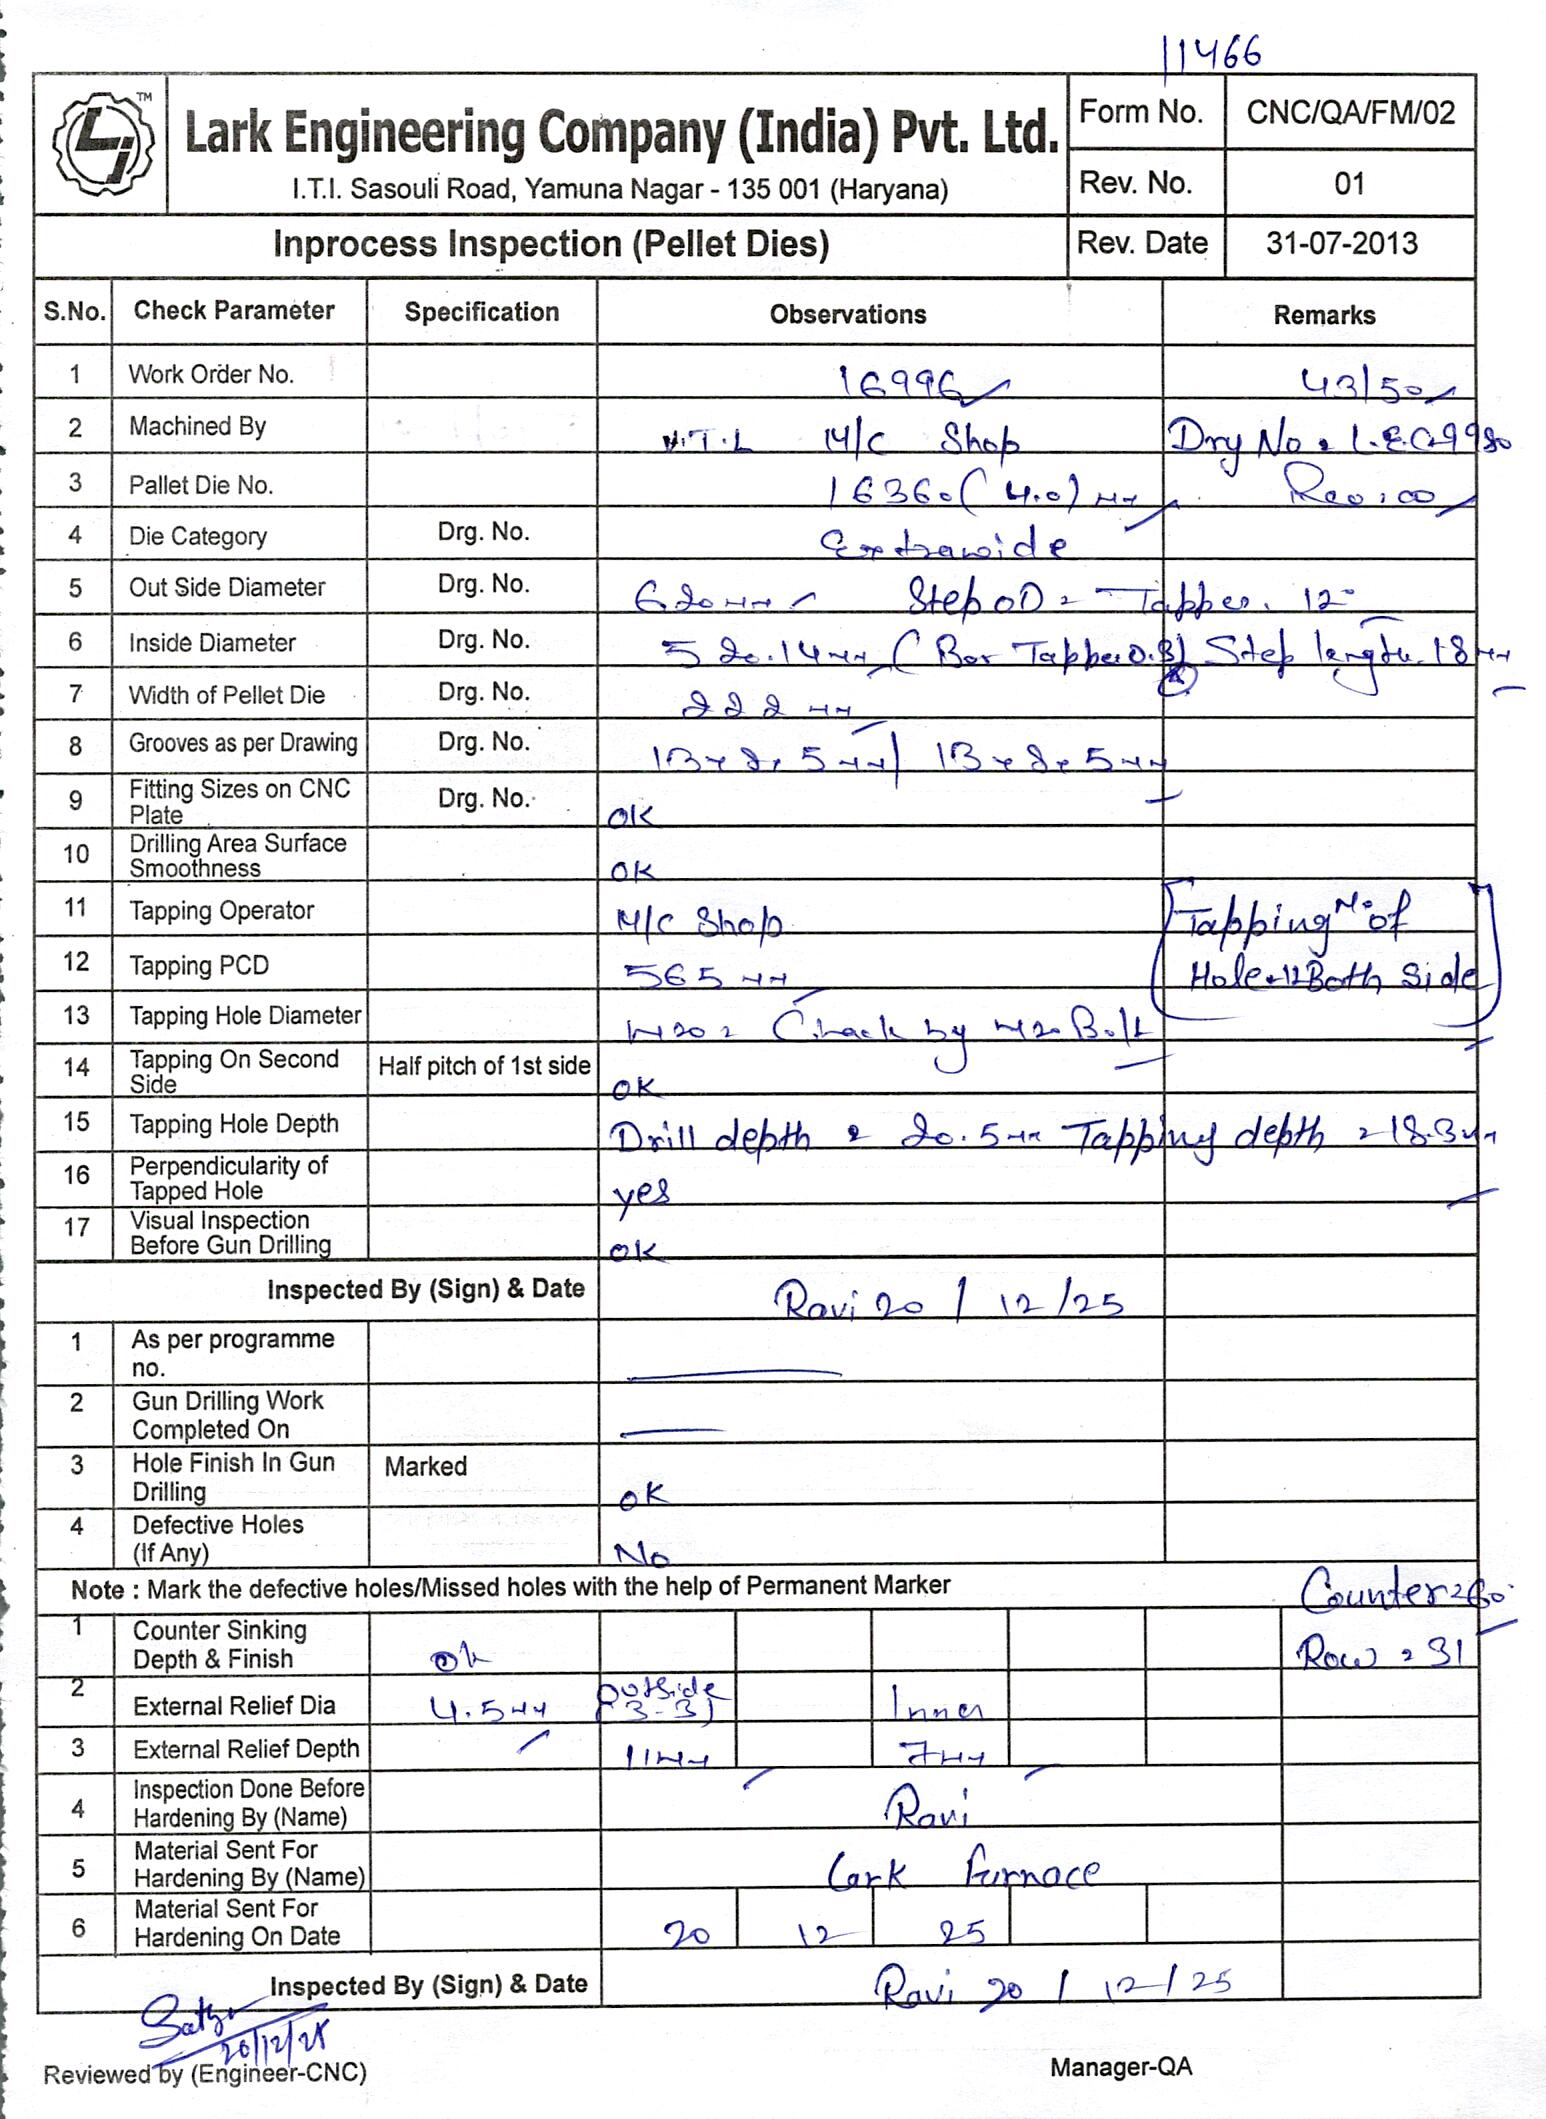 11466
TM
Lark Engineering Company (India) Pvt. Ltd.
I.T.I. Sasouli Road, Yamuna Nagar - 135 001 (Haryana)
Form No. CNC/QA/FM/02
Rev. No. 01
Inprocess Inspection (Pellet Dies)
Rev. Date 31-07-2013
S.No. Check Parameter Specification Observations Remarks
1 Work Order No. 16996 43/50
2 Machined By V.T.L M/C Shop Drg No.
3 Pallet Die No. 16360 (4.0) mm Rev: 00
4 Die Category Drg. No. Extrawide
5 Out Side Diameter Drg. No. 620mm Step OD = Tapper. 12°
6 Inside Diameter Drg. No. 520.14mm (Bor Tapper 0.3) Step length. 18mm
7 Width of Pellet Die Drg. No. 222 mm
8 Grooves as per Drawing Drg. No. 13 x 2.5mm / 13 x 2.5mm
9 Fitting Sizes on CNC Plate Drg. No. OK
10 Drilling Area Surface Smoothness OK
11 Tapping Operator M/C Shop Tapping No. of
12 Tapping PCD 565 mm Hole = 12 Both Side
13 Tapping Hole Diameter M20 = Chack by M20 Bolt
14 Tapping On Second Side Half pitch of 1st side OK
15 Tapping Hole Depth Drill depth = 20.5mm Tapping depth = 18.3mm
16 Perpendicularity of Tapped Hole yes
17 Visual Inspection Before Gun Drilling OK
Inspected By (Sign) & Date Ravi 20 / 12 /25
1 As per programme no.
2 Gun Drilling Work Completed On
3 Hole Finish In Gun Drilling Marked OK
4 Defective Holes (If Any) No
Note : Mark the defective holes/Missed holes with the help of Permanent Marker
Counter = 60°
1 Counter Sinking Depth & Finish ok Row = 31
2 External Relief Dia 4.5mm Outside 3-3 Inner
3 External Relief Depth 11mm 7mm
4 Inspection Done Before Hardening By (Name) Ravi
5 Material Sent For Hardening By (Name) Lark Furnace
6 Material Sent For Hardening On Date 20 12 25
Inspected By (Sign) & Date Ravi 20 / 12 / 25
20/12/25
Reviewed by (Engineer-CNC) Manager-QA